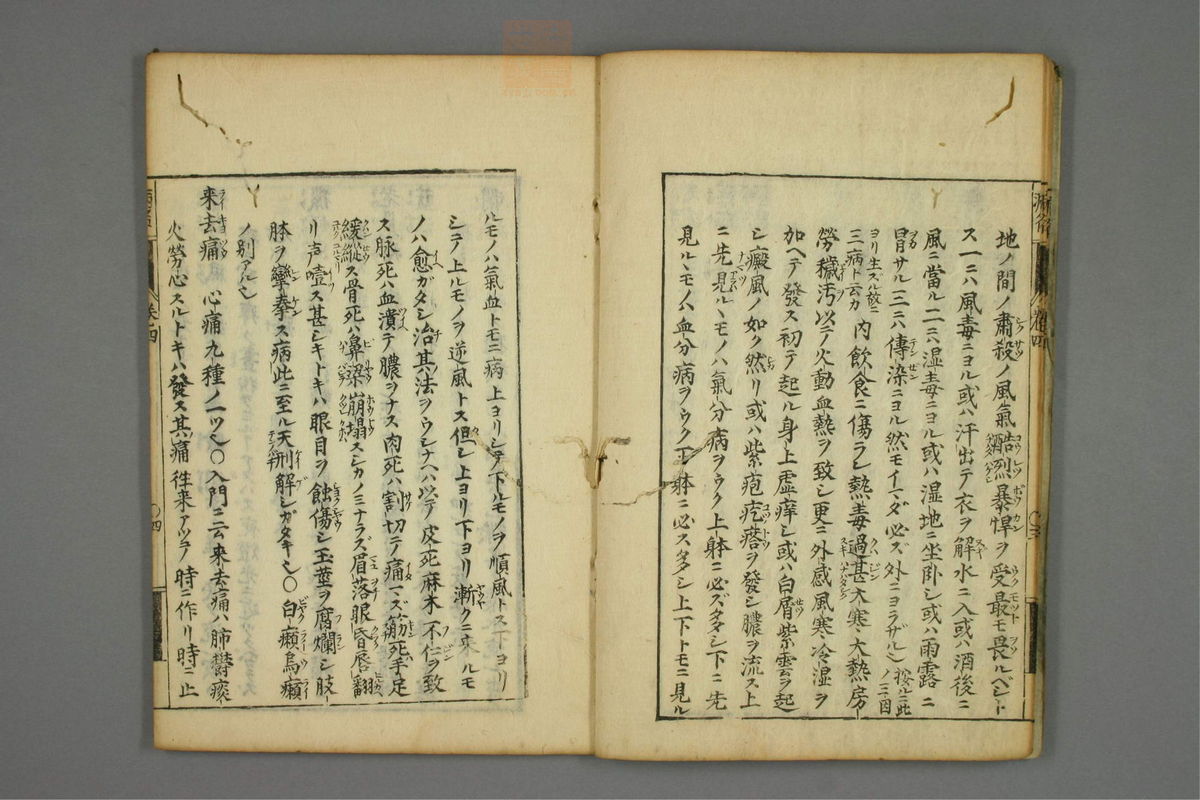 地ノ間ノ肅殺ノ風氣酷烈暴悍ヲ受最モ畏ルベシト
ス一ニハ風毒ニヨル或ハ汗出テ衣ヲ解水ニ入或ハ酒後ニ
風ニ當ル二ニハ湿毒ニヨル或ハ湿地ニ坐卧シ或ハ雨露ニ
冐サル三ニハ傳染ニヨル然モイマダ必ズ外ニヨラザル 按ルニ此ノ三因
ヨリ生スル故ニ三病ト云カ 内飲食ニ傷ラレ熱毒過甚大寒大熱房
勞穢汚以テ火動血熱ヲ致シ更ニ外感風寒冷湿ヲ
加ヘテ發ス初テ起ル身上虚痒シ或ハ白屑紫雲ヲ起
シ癜風ノ如ク然リ或ハ紫疱疙瘩ヲ發シ膿ヲ流ス上
ニ先見ルヽモノハ氣分病ヲウク上躰ニ必ズ多シ下ニ先
見ルヽモノハ血分病ヲウク下躰ニ必ス多シ上下トモニ見ル
ルモノハ氣血トモニ病上ヨリシテ下ルモノヲ順風トス下ヨリ
シテ上ルモノヲ逆風トス但シ上ヨリ下ヨリ漸クニ来ルモ
ノハ愈ガタシ治其法ヲウシナヘハ以テ皮死麻木不仁ヲ致
ス脉死ハ血潰テ膿ヲナス肉死ハ割切テ痛マズ筋死手足
緩縦ス骨死ハ鼻梁崩塌スシカノミナラズ眉落眼昏唇翻
リ声噎ス甚シキトキハ眼目ヲ蝕傷シ玉莖ヲ腐爛シ肢
体ヲ攣拳ス病此ニ至ル天刑解シガタキ也○白癩烏癩
ノ別アル也
来去痛 心痛九種ノ一ツ也○入門ニ云来去痛ハ肺鬱痰
火勞心スルトキハ發ス其痛徃来アツテ時ニ作リ時ニ止
巻四